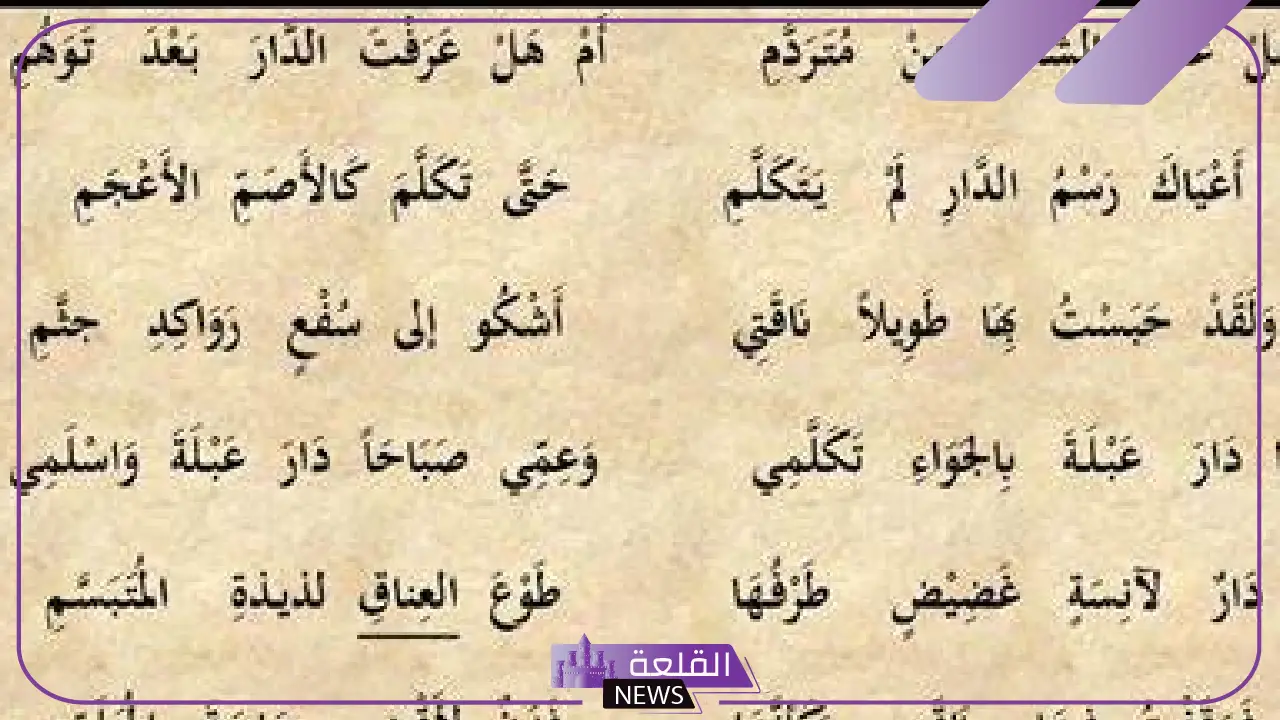 مِنْ مُتَرَدَّمِ أَمْ هَلْ عَرَفْتَ الدَّارَ بَعْدَ تَوَهُّمِ
أَعْيَاكَ رَسْمُ الدَّارِ لَمْ يَتَكَلَّمِ حَتَّى تَكَلَّمَ كَالأَصَمِّ الأَعْجَمِ
وَلَقَدْ حَبَسْتُ بِهَا طَوِيلاً نَاقَتِي أَشْكُو إلى سُفْعٍ رَوَاكِدِ جثَّمِ
دَارَ عَبْلَةَ بِالجَوَاءِ تَكَلَّمِي وَعِمِّي صَبَاحَاً دَارَ عَبْلَةَ وَاسْلَمِي
دَارٌ لآنِسَةٍ غَضِيْضٍ طَرْفُهَا طَوْعَ العِناقِ لذيذةِ المُتَبَسَّمِ
القلعة
NEWS